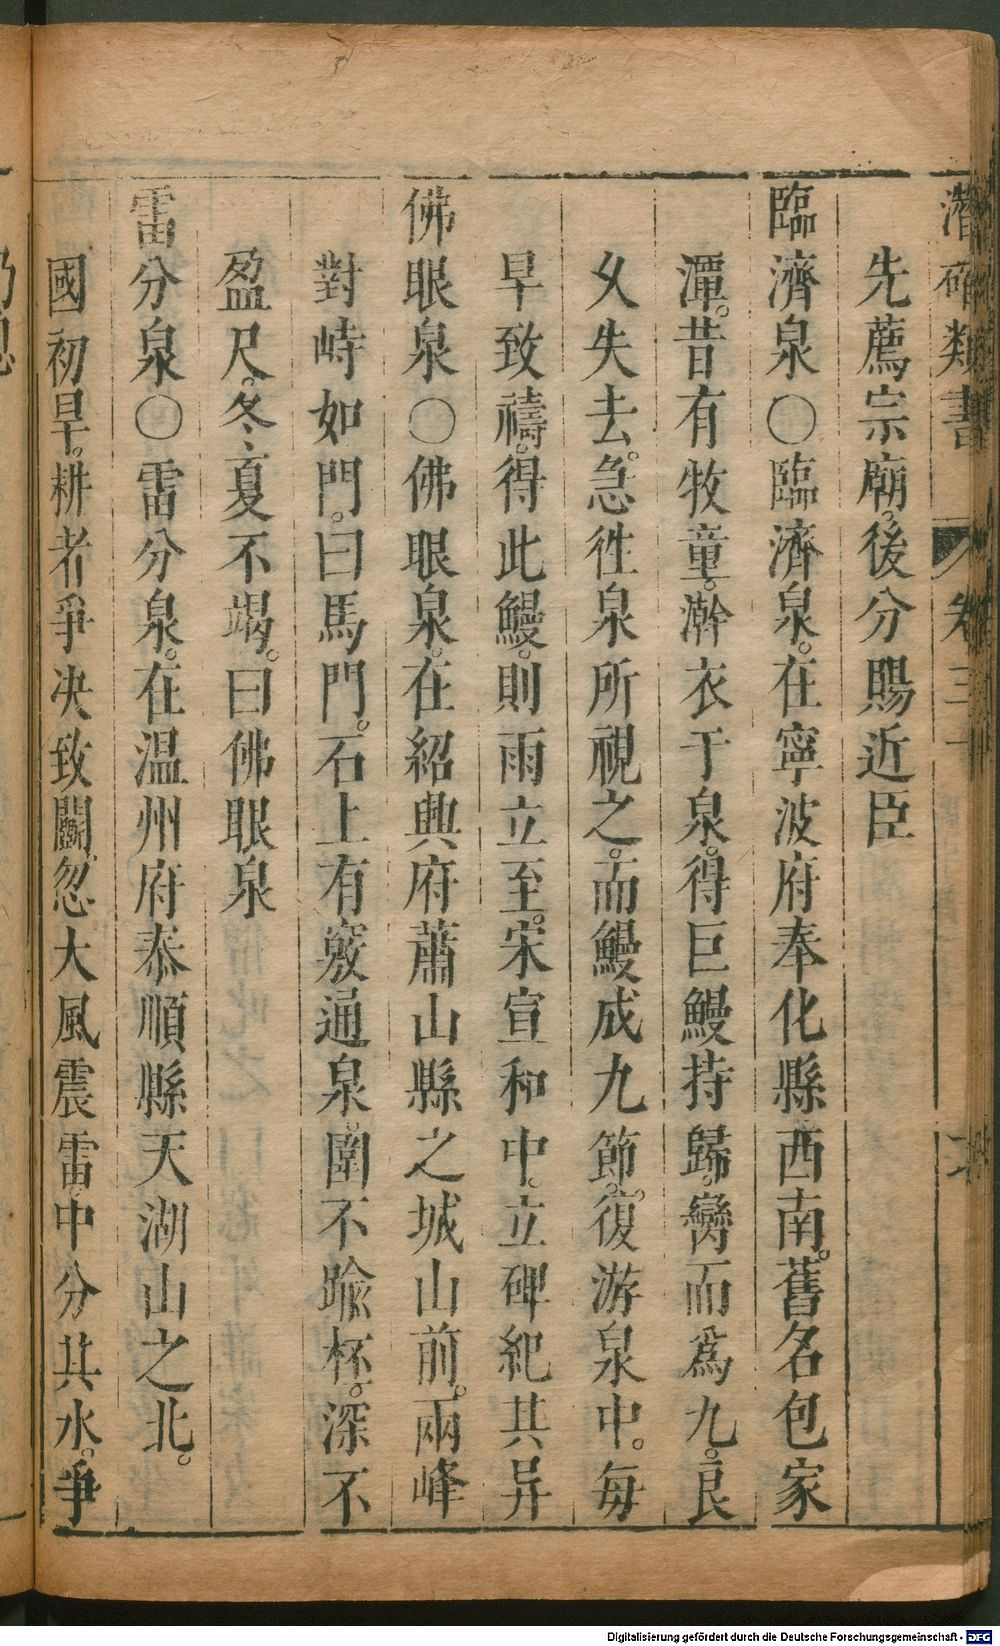 潛確類書 卷三十
先薦宗廟。後分賜近臣
臨濟泉〇臨濟泉。在寧波府奉化縣西南。舊名包家
潭。昔有牧童。澣衣于泉。得巨鰻持歸。臠而爲九。良
久失去。急徃泉所視之。而鰻成九節。復游泉中。每
旱致禱。得此鰻。則雨立至。宋宣和中。立碑紀其异
佛眼泉〇佛眼泉。在紹興府蕭山縣之城山前。兩峰
對峙如門。曰馬門。石上有竅通泉。圍不踰杯。深不
盈尺。冬夏不竭。曰佛眼泉
雷分泉〇雷分泉。在温州府泰順縣天湖山之北。
國初旱。耕者爭决致鬬。忽大風震雷。中分其水。爭
Digitalisierung gefördert durch die Deutsche Forschungsgemeinschaft - DFG